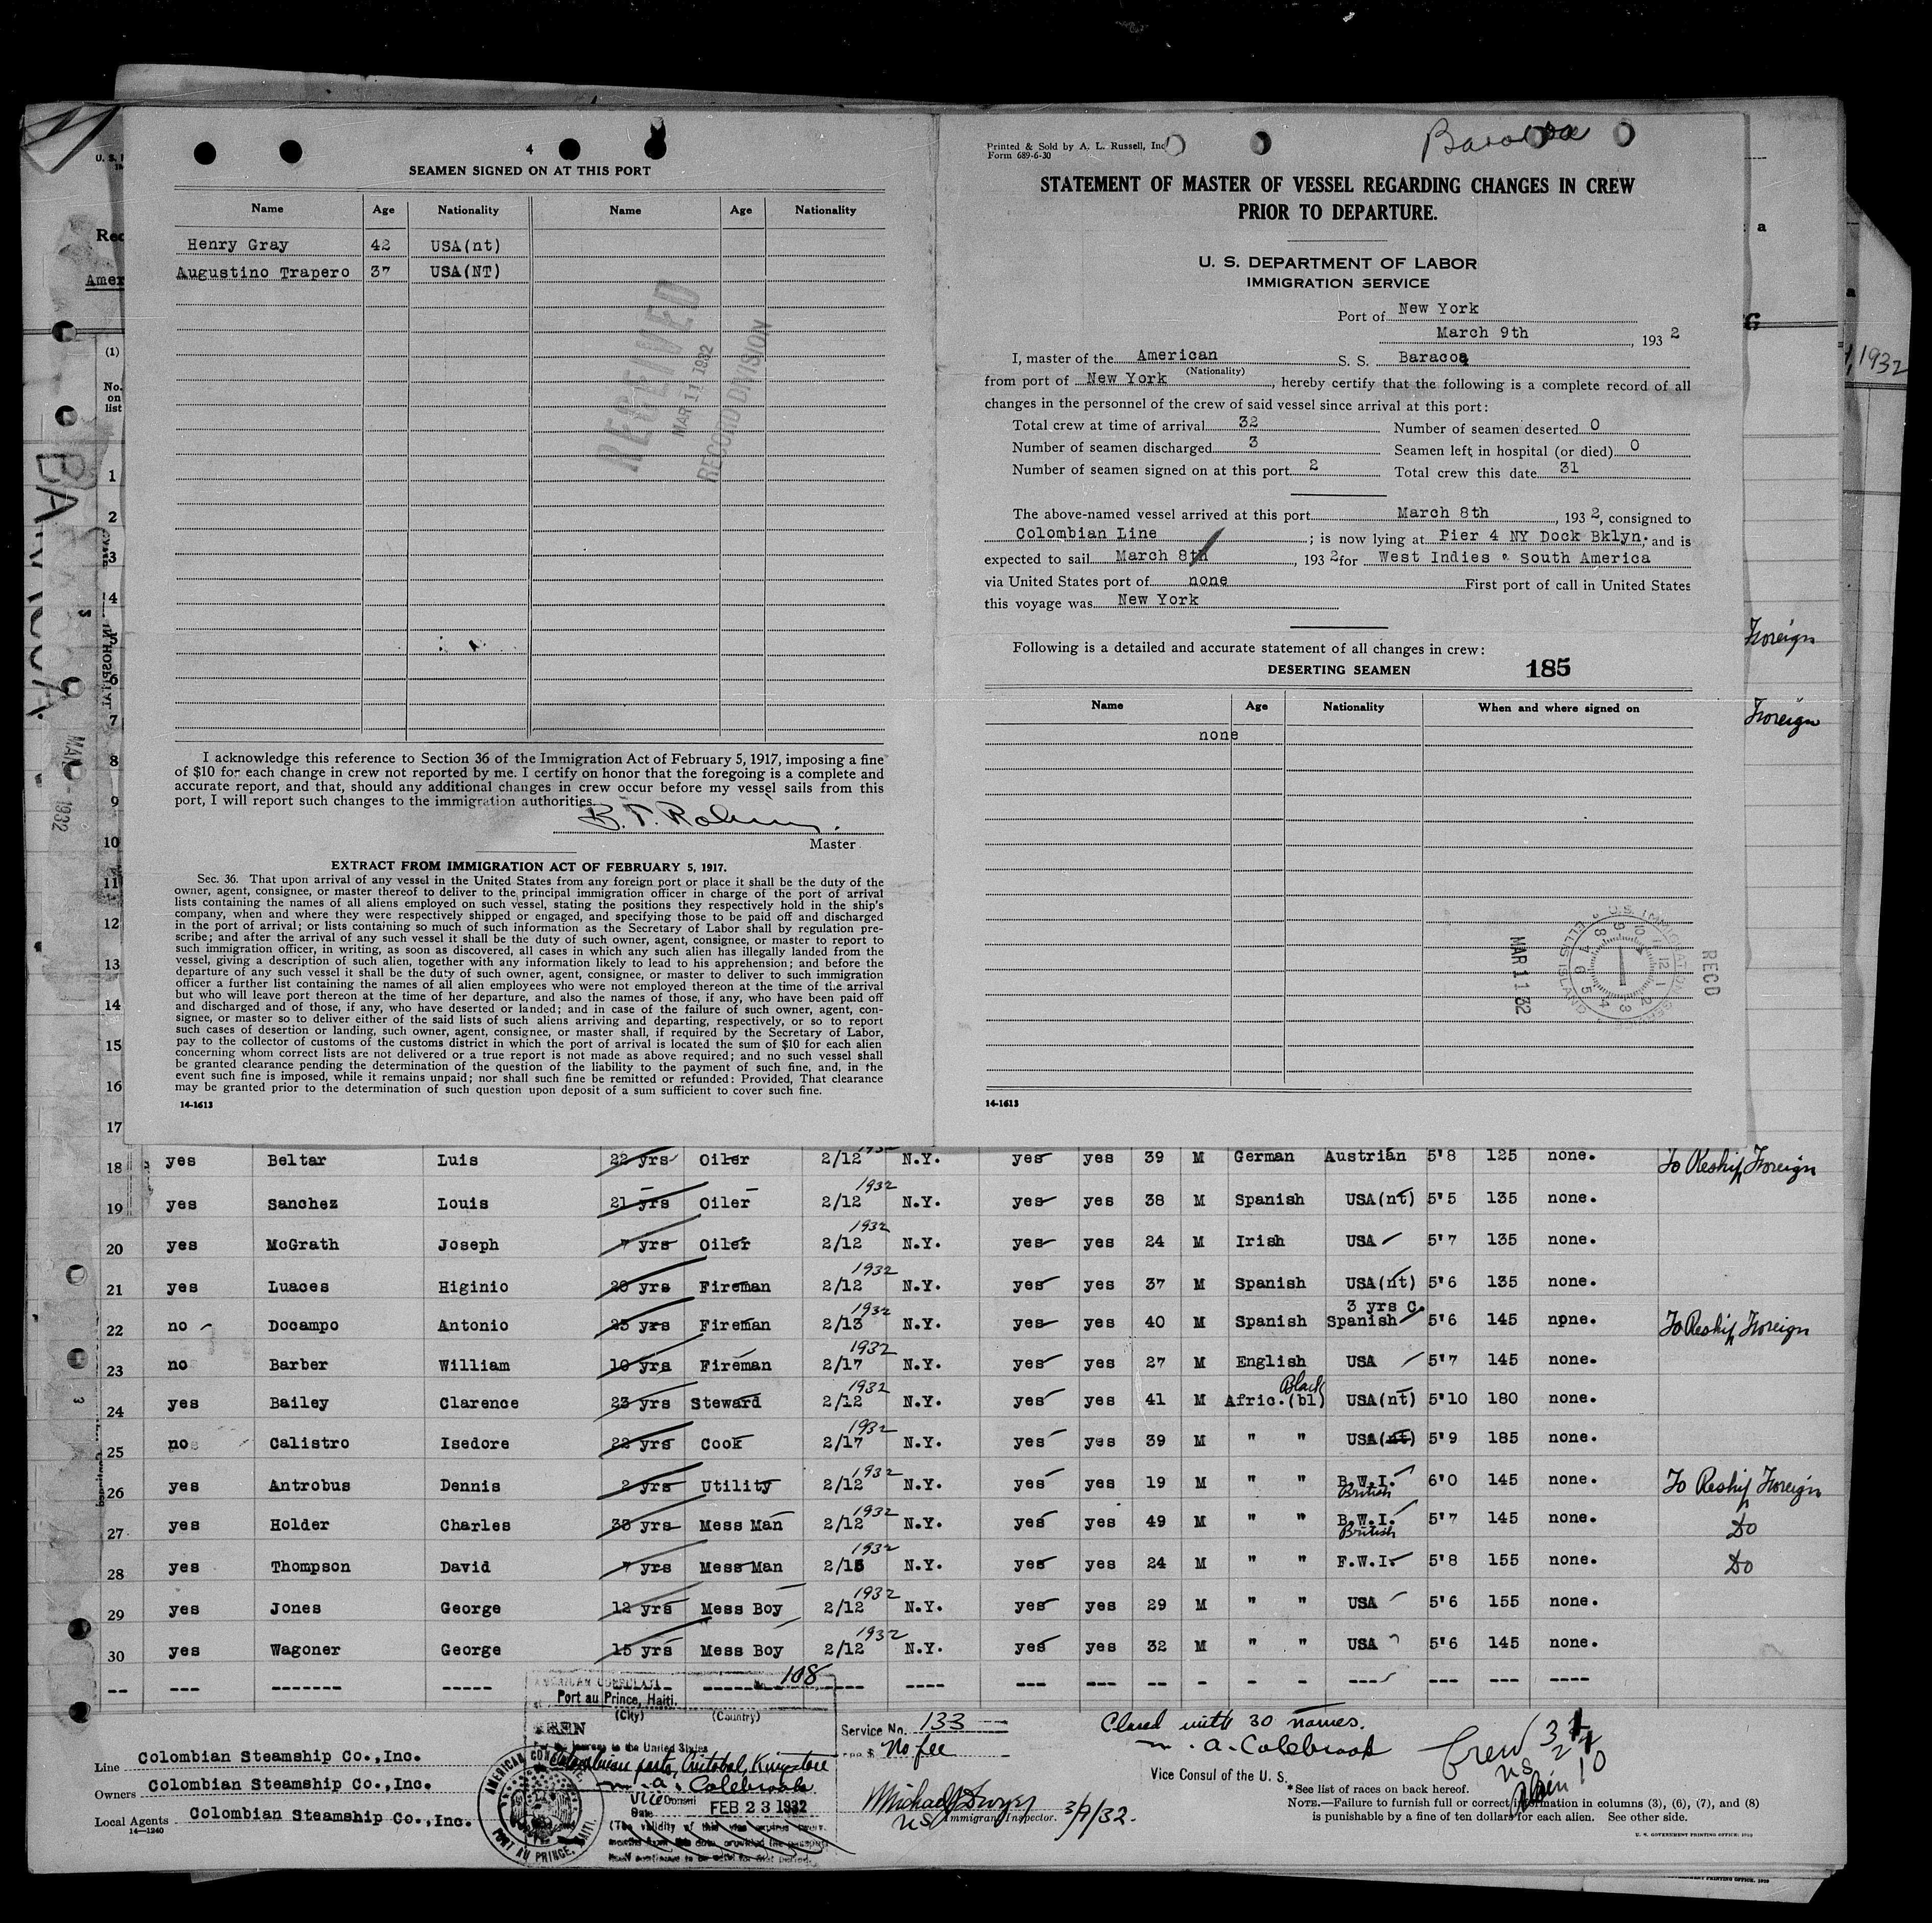 4
SEAMEN SIGNED ON AT THIS PORT
Name Age Nationality Name Age Nationality
Henry Gray 42 USA(nt)
Augustino Trapero 37 USA(NT)
RECEIVED
MAR 11 1932
RECORD DIVISION
I acknowledge this reference to Section 36 of the Immigration Act of February 5, 1917, imposing a fine
of $10 for each change in crew not reported by me. I certify on honor that the foregoing is a complete and
accurate report, and that, should any additional changes in crew occur before my vessel sails from this
port, I will report such changes to the immigration authorities.
Master
EXTRACT FROM IMMIGRATION ACT OF FEBRUARY 5, 1917.
Sec. 36. That upon arrival of any vessel in the United States from any foreign port or place it shall be the duty of the
owner, agent, consignee, or master thereof to deliver to the principal immigration officer in charge of the port of arrival
lists containing the names of all aliens employed on such vessel, stating the positions they respectively hold in the ship's
company, when and where they were respectively shipped or engaged, and specifying those to be paid off and discharged
in the port of arrival; or lists containing so much of such information as the Secretary of Labor shall by regulation pre-
scribe; and after the arrival of any such vessel it shall be the duty of such owner, agent, consignee, or master to report to
such immigration officer, in writing, as soon as discovered, all cases in which any such alien has illegally landed from the
vessel, giving a description of such alien, together with any information likely to lead to his apprehension; and before the
departure of any such vessel it shall be the duty of such owner, agent, consignee, or master to deliver to such immigration
officer a further list containing the names of all alien employees who were not employed thereon at the time of the arrival
but who will leave port thereon at the time of her departure, and also the names of those, if any, who have been paid off
and discharged and of those, if any, who have deserted or landed; and in case of the failure of such owner, agent, con-
signee, or master so to deliver either of the said lists of such aliens arriving and departing, respectively, or so to report
such cases of desertion or landing, such owner, agent, consignee, or master shall, if required by the Secretary of Labor,
pay to the collector of customs of the customs district in which the port of arrival is located the sum of $10 for each alien
concerning whom correct lists are not delivered or a true report is not made as above required; and no such vessel shall
be granted clearance pending the determination of the question of the liability to the payment of such fine, and, in the
event such fine is imposed, while it remains unpaid; nor shall such fine be remitted or refunded: Provided, That clearance
may be granted prior to the determination of such question upon deposit of a sum sufficient to cover such fine.
14-1613
Printed & Sold by A. L. Russell, Inc
Form 689-6-30
Baracoa
STATEMENT OF MASTER OF VESSEL REGARDING CHANGES IN CREW
PRIOR TO DEPARTURE.
U. S. DEPARTMENT OF LABOR
IMMIGRATION SERVICE
Port of New York
March 9th, 1932
I, master of the American S. S. Baracoa
(Nationality)
from port of New York, hereby certify that the following is a complete record of all
changes in the personnel of the crew of said vessel since arrival at this port:
Total crew at time of arrival 32 Number of seamen deserted 0
Number of seamen discharged 3 Seamen left in hospital (or died) 0
Number of seamen signed on at this port 2 Total crew this date 31
The above-named vessel arrived at this port March 8th, 1932, consigned to
Colombian Line; is now lying at Pier 4 NY Dock Bklyn. and is
expected to sail March 8th, 1932 for West Indies & South America
via United States port of none First port of call in United States
this voyage was New York
Following is a detailed and accurate statement of all changes in crew:
DESERTING SEAMEN 185
Name Age Nationality When and where signed on
none
RECD
U.S. IMMIGRATION SERVICE ELLIS ISLAND
MAR 11 32
14-1613
(1)
No. on list
1
2
3
4
5
6
7
8
9
10
11
12
13
14
15
16
17
, 1932
Foreign
Foreign
18 yes Beltar Luis 22 yrs Oiler 2/12 1932 N.Y. yes yes 39 M German Austrian 5'8 125 none. To Reship Foreign
19 yes Sanchez Louis 21 yrs Oiler 2/12 1932 N.Y. yes yes 38 M Spanish USA(nt) 5'5 135 none.
20 yes McGrath Joseph 7 yrs Oiler 2/12 1932 N.Y. yes yes 24 M Irish USA 5'7 135 none.
21 yes Luaces Higinio 20 yrs Fireman 2/12 1932 N.Y. yes yes 37 M Spanish USA(nt) 5'6 135 none.
22 no Docampo Antonio 25 yrs Fireman 2/13 1932 N.Y. yes yes 40 M Spanish 3 yrs C. Spanish 5'6 145 none. To Reship Foreign
23 no Barber William 10 yrs Fireman 2/17 1932 N.Y. yes yes 27 M English USA 5'7 145 none.
24 yes Bailey Clarence 23 yrs Steward 2/12 1932 N.Y. yes yes 41 M Afric.(bl) Black USA(nt) 5'10 180 none.
25 no Calistro Isedore 22 yrs Cook 2/17 1932 N.Y. yes yes 39 M " " USA(nt) 5'9 185 none.
26 yes Antrobus Dennis 2 yrs Utility 2/12 1932 N.Y. yes yes 19 M " " B.W.I. British 6'0 145 none. To Reship Foreign
27 yes Holder Charles 33 yrs Mess Man 2/12 1932 N.Y. yes yes 49 M " " B.W.I. British 5'7 145 none. Do
28 yes Thompson David 7 yrs Mess Man 2/15 1932 N.Y. yes yes 24 M " " F.W.I. 5'8 155 none. Do
29 yes Jones George 12 yrs Mess Boy 2/12 1932 N.Y. yes yes 29 M " " USA 5'6 155 none.
30 yes Wagoner George 15 yrs Mess Boy 2/12 1932 N.Y. yes yes 32 M " " USA 5'6 145 none.
Line Colombian Steamship Co.,Inc.
Owners Colombian Steamship Co.,Inc.
Local Agents Colombian Steamship Co.,Inc.
14-1240
AMERICAN CONSULATE
No. 108
Port au Prince, Haiti.
(City) (Country)
SEEN
Colombian ports, Cristobal, Kingston
M. A. Colebrook
Vice Consul
Date FEB 23 1932
PORT AU PRINCE, HAITI.
Service No. 133
Fee $ No fee
Immigrant Inspector. 3/9/32.
Closed with 30 names.
M. A. Colebrook
Vice Consul of the U. S.
Crew 32
US
Alien 10
*See list of races on back hereof.
NOTE.—Failure to furnish full or correct information in columns (3), (6), (7), and (8)
is punishable by a fine of ten dollars for each alien. See other side.
U. S. GOVERNMENT PRINTING OFFICE: